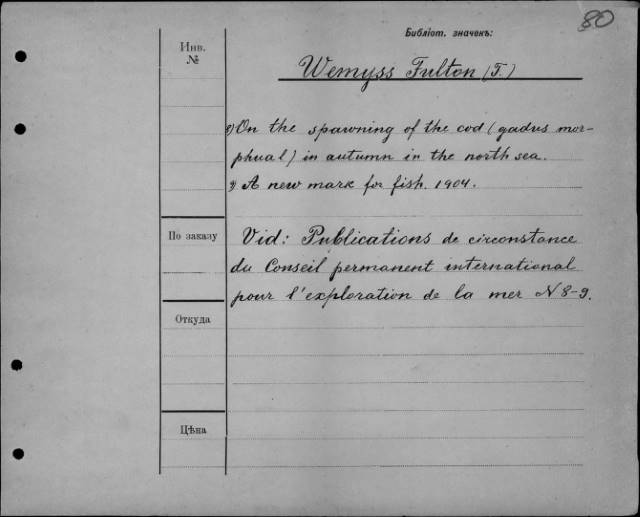 80
Библіот. значекъ:
Инв. №
Wemyss Fulton (T.)
1) On the spawning of the cod (gadus mor-
phual) in autumn in the north sea.
2) A new mark for fish. 1904.
По заказу
Vid: Publications de circonstance
du Conseil permanent international
pour l'exploration de la mer N 8-9.
Откуда
Цѣна